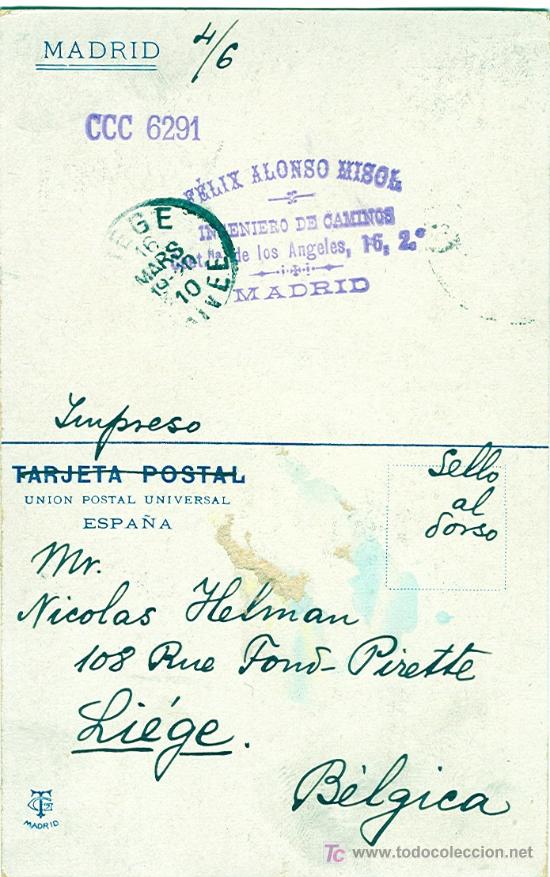 MADRID
4/6
CCC 6291
FÉLIX ALONSO MISOL
INGENIERO DE CAMINOS
de los Angeles, 16, 2º
MADRID
EGE
16
MARS
19-20
10
IVÉE
Impreso
TARJETA POSTAL
UNION POSTAL UNIVERSAL
ESPAÑA
Sello
al
dorso
Mr.
Nicolas Helman
108 Rue Fond-Pirette
Liége.
Bélgica
MADRID
TC www.todocoleccion.net